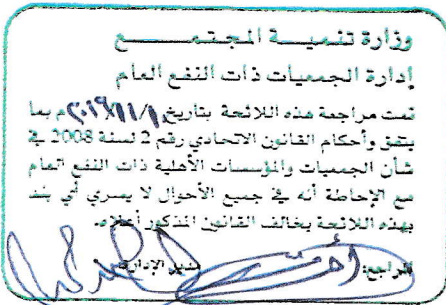 وزارة تنميـــة المجتمـــــــع
إدارة الجمعيات ذات النفع العام
تمت مراجعة هذه اللائحة بتاريخ ٢٠١٩/١١/١٠م بما
يتفق وأحكام القانون الاتحادي رقم 2 لسنة 2008 في
شأن الجمعيات والمؤسسات الأهلية ذات النفع العام
مع الإحاطة أنه في جميع الأحوال لا يسري أي بند
بهذه اللائحة يخالف القانون المذكور أعلاه.
المراجع: مدير الإدارة